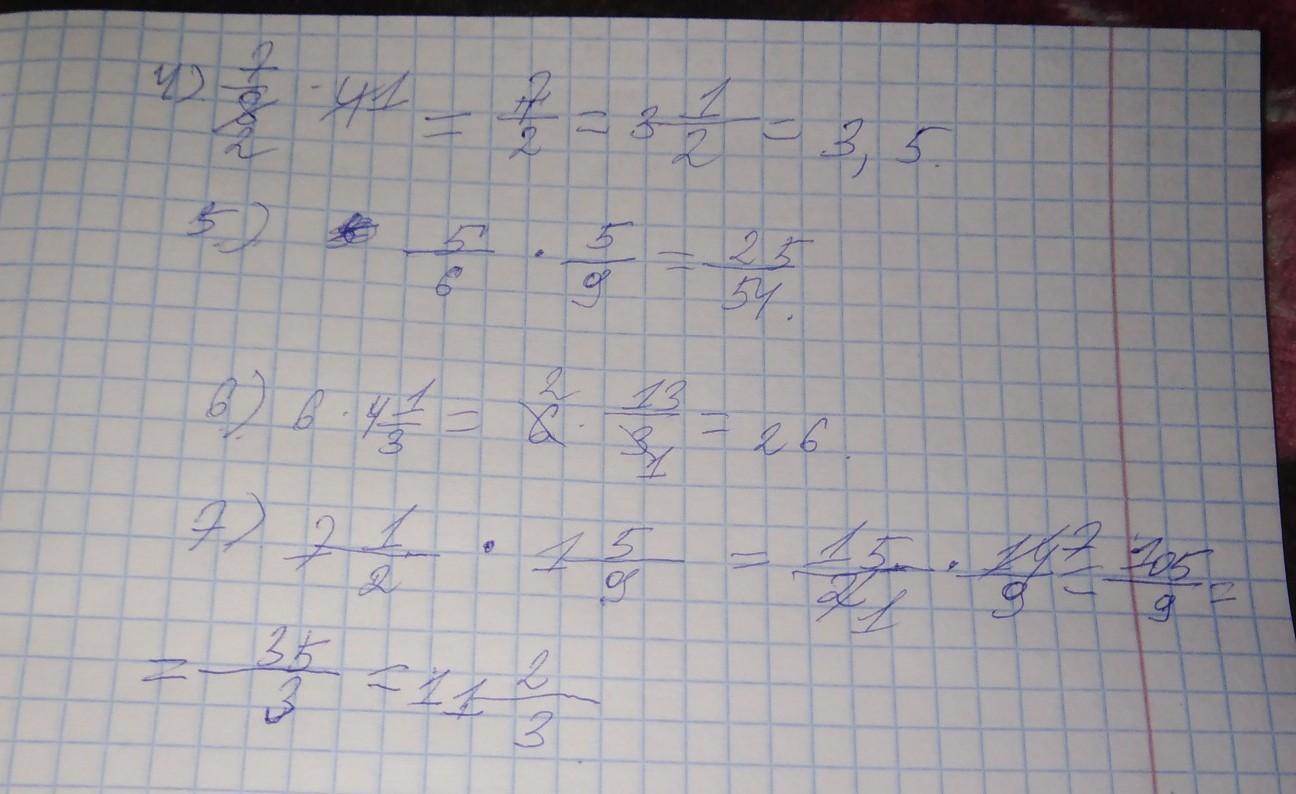 4) 7/8 2 · 4 1 = 7/2 = 3 1/2 = 3,5.
5) 5/6 · 5/9 = 25/54.
6) 6 · 4 1/3 = 6 2 · 13/3 1 = 26.
7) 7 1/2 · 1 5/9 = 15/2 1 · 14 7/9 = 105/9 =
= 35/3 = 11 2/3